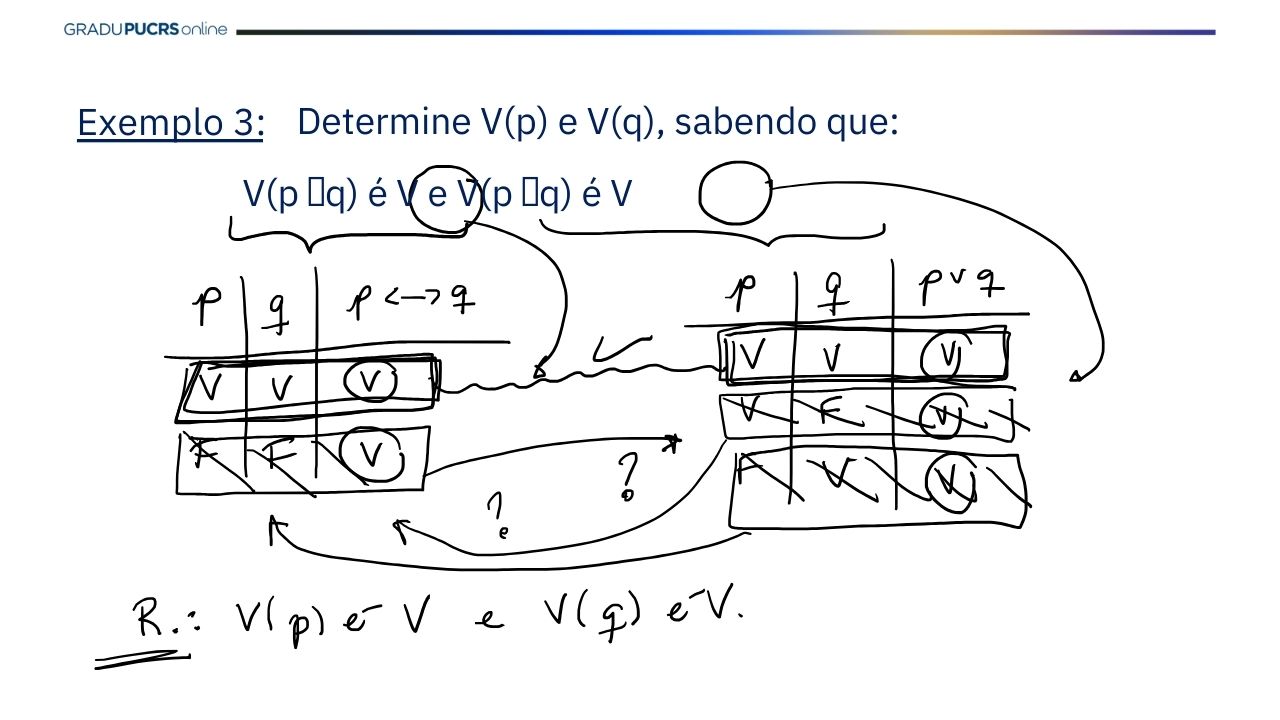 GRADUPUCRS online
Exemplo 3: Determine V(p) e V(q), sabendo que:
V(p ▯q) é V e V(p ▯q) é V
p q p <—> q
p q p v q
V V V
V V V
V F V
F F V
F V V
?
?
R.: V(p) é V e V(q) é V.